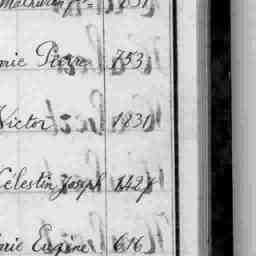 Mathurin
nie Pierre 753
Victor 1231
Celestin Joseph 1427
nie Eugène 616